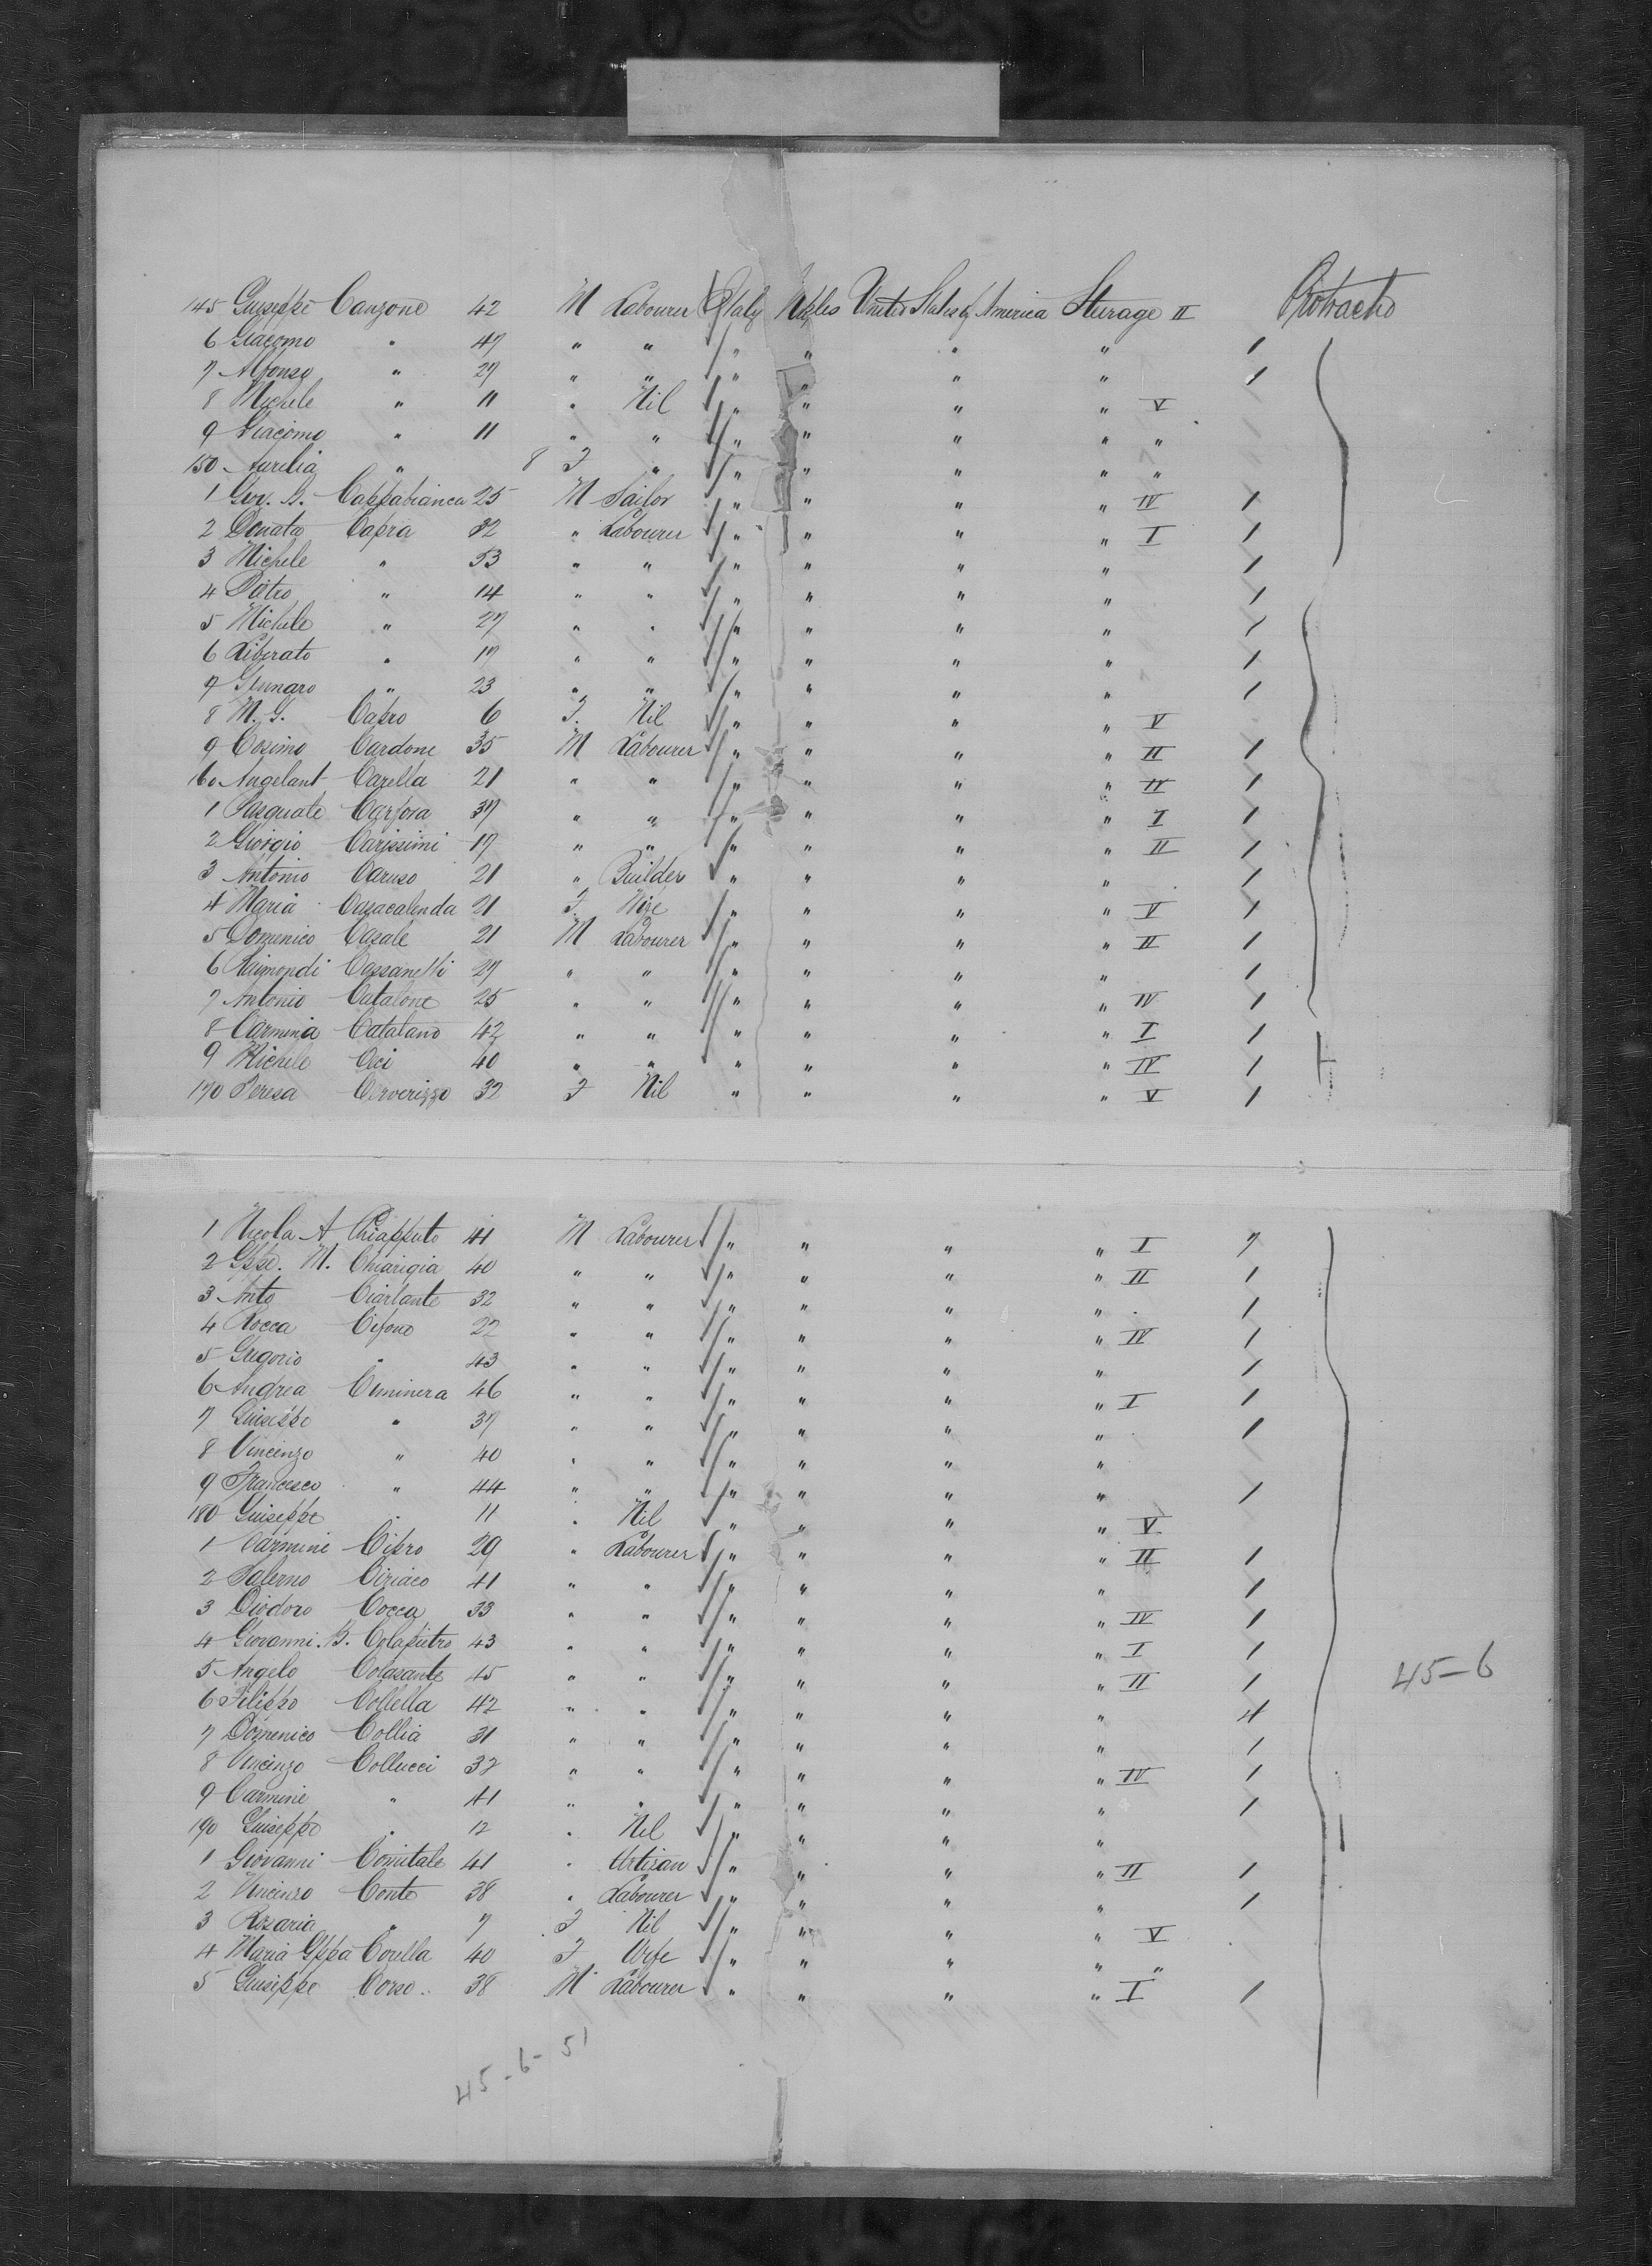 145 Giuseppe Canzone 42 M Labourer Italy Naples United States of America Sturage II Protracted
6 Giacomo " 47 " " " " " " 1
7 Alfonso " 27 " " " " " " 1
8 Michele " 11 " Nil " " " " V
9 Giacomo " 11 " " " " " " "
150 Aurelia " 8 F " " " " " "
1 Giov. B. Cappabianca 25 M Sailor " " " " IV 1
2 Donato Capra 32 " Labourer " " " " I 1
3 Michele " 53 " " " " " " 1
4 Pietro " 14 " " " " " " 1
5 Michele " 27 " " " " " " 1
6 Liberato " 17 " " " " " " 1
7 Gennaro " 23 " " " " " " 1
8 M. G. Capro 6 F. Nil " " " " V
9 Cosimo Cardone 35 M Labourer " " " " II 1
160 Angelant Carella 21 " " " " " " II 1
1 Pasquale Carfora 37 " " " " " " I 1
2 Giorgio Carissimi 17 " " " " " " II 1
3 Antonio Caruso 21 " Builder " " " " 1
4 Maria Casacalenda 21 F. Wife " " " " V 1
5 Domenico Casale 21 M Labourer " " " " II 1
6 Raimondi Cassanelli 27 " " " " " " 1
7 Antonio Catalone 25 " " " " " " IV 1
8 Carminia Catalano 42 " " " " " " I 1
9 Michele Ceci 40 " " " " " " IV 1
170 Teresa Cerverizzo 32 F Nil " " " " V 1
1 Nicola A Chiapputo 41 M Labourer " " " " I 7
2 Gppe. M. Chiarigia 40 " " " " " " II 1
3 Anto Ciarlante 32 " " " " " " 1
4 Rocca Cifone 22 " " " " " " IV 1
5 Gregorio " 43 " " " " " " 1
6 Andrea Ciminera 46 " " " " " " I 1
7 Guiseppe " 37 " " " " " " 1
8 Vincenzo " 40 " " " " " "
9 Francesco " 44 " " " " " " 1
180 Guiseppe " 11 " Nil " " " " V
1 Carmine Cipro 29 " Labourer " " " " II 1
2 Salerno Ciriaco 41 " " " " " " 1
3 Diodoro Cocca 33 " " " " " " IV 1
4 Giovanni. B. Colapietro 43 " " " " " " I 1
5 Angelo Colasante 45 " " " " " " II 1 45-6
6 Filippo Collella 42 " " " " " " 4
7 Domenico Collia 31 " " " " " " 1
8 Vincenzo Collucci 32 " " " " " " IV 1
9 Carmine " 41 " " " " " " 1
190 Guiseppe " 12 " Nil " " " "
1 Giovanni Comitale 41 " Artisan " " " " II 1
2 Vincenzo Conte 38 " Labourer " " " " 1
3 Rosaria " 7 F Nil " " " " V
4 Maria Gppa Corella 40 F Wife " " " " "
5 Guiseppe Corso 38 M Labourer " " " " I 1
45-6-51